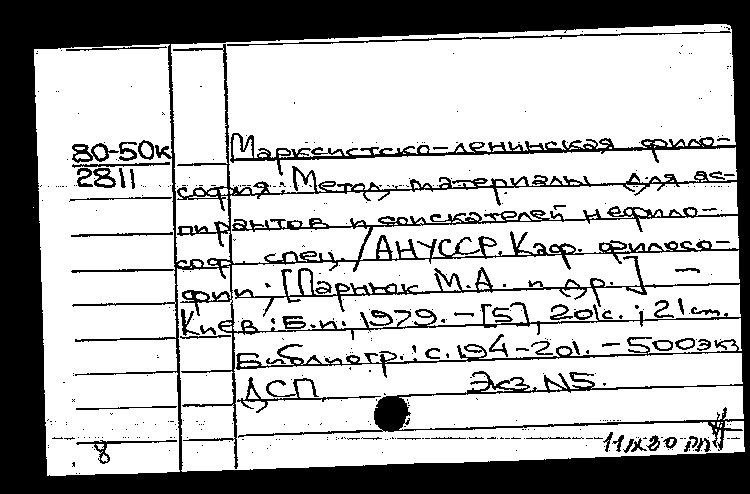 80-50к Марксистско-ленинская фило-
2811 софия: Метод. материалы для ас-
пирантов и соискателей нефило-
соф. спец. / АН УССР. Каф. филосо-
фии; [Парнюк М.А. и др.] –
Киев: Б.и., 1979. – [5], 201с.; 21 см.
Библиогр.: с. 194-201. – 500 экз
ДСП Экз. N5.
8 11 IX 80